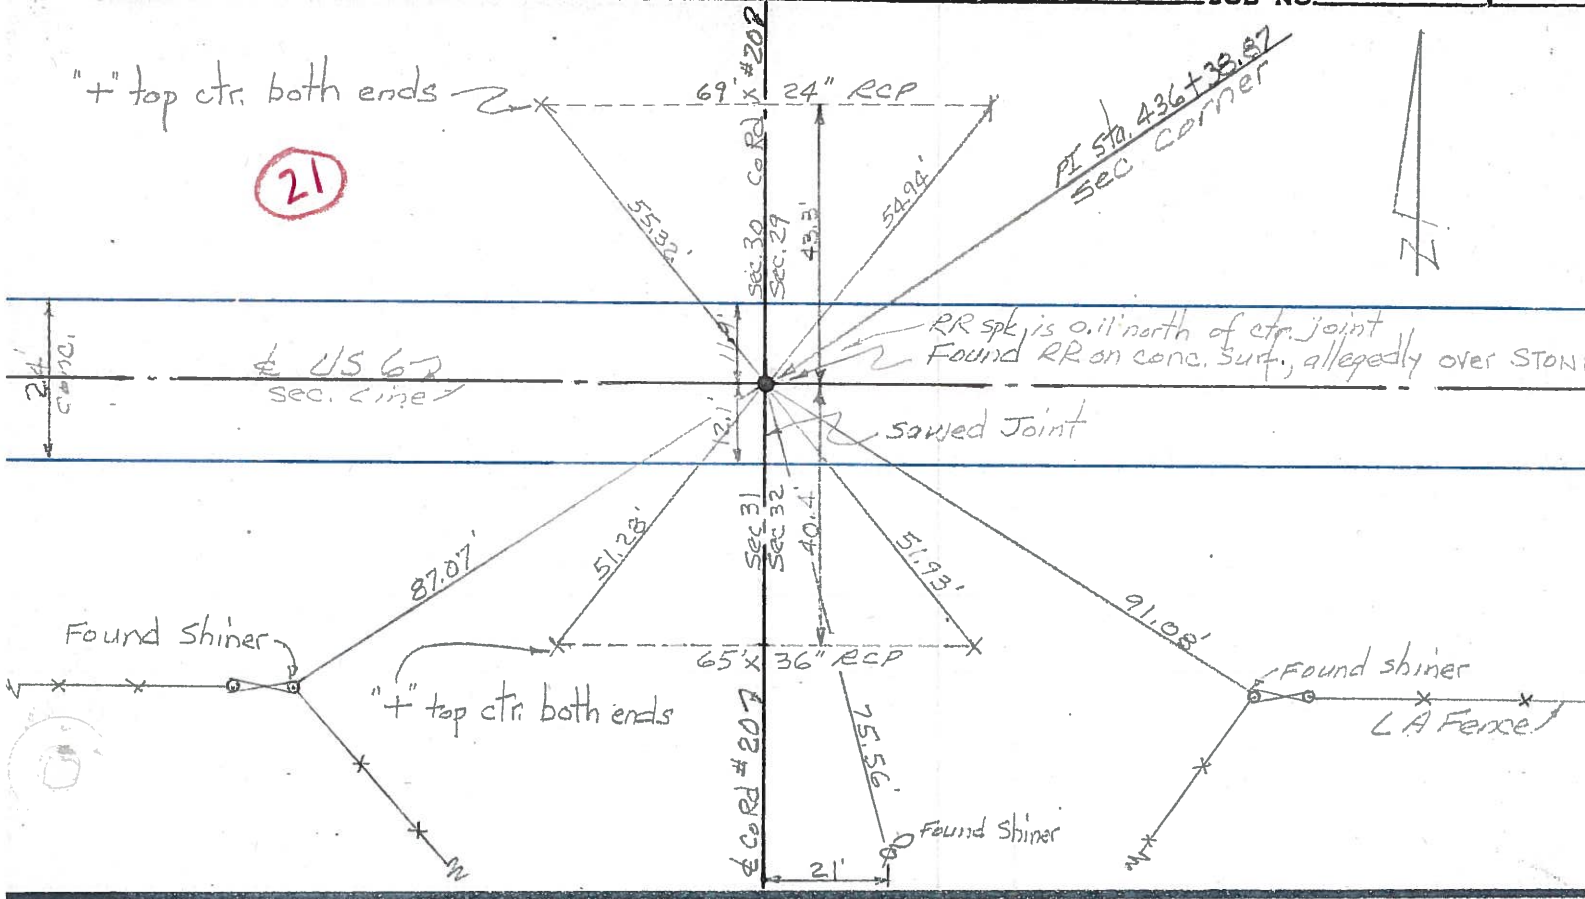 JOB NO.
"+" top ctr. both ends
69' x 24" RCP
CoRd #207
PI Sta. 436+38.87
sec corner
21
55.32'
54.94'
Sec. 30
Sec. 29
43.3'
N
24'
conc.
11.9'
RR spk. is 0.11' north of ctr. joint
Found RR on conc. surf., allegedly over STONE
℄ US 62
sec. line
12.1'
Sawed Joint
Sec 31
Sec 32
40.4'
87.07'
51.28'
51.93'
91.08'
Found Shiner
65' x 36" RCP
"+" top ctr. both ends
Found shiner
LA Fence
℄ CoRd #207
75.56'
Found Shiner
21'